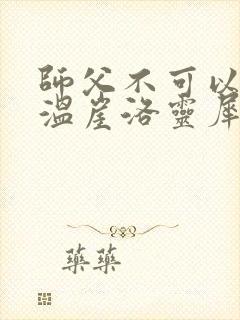 師父不可以
溫崖洛靈犀
藥藥